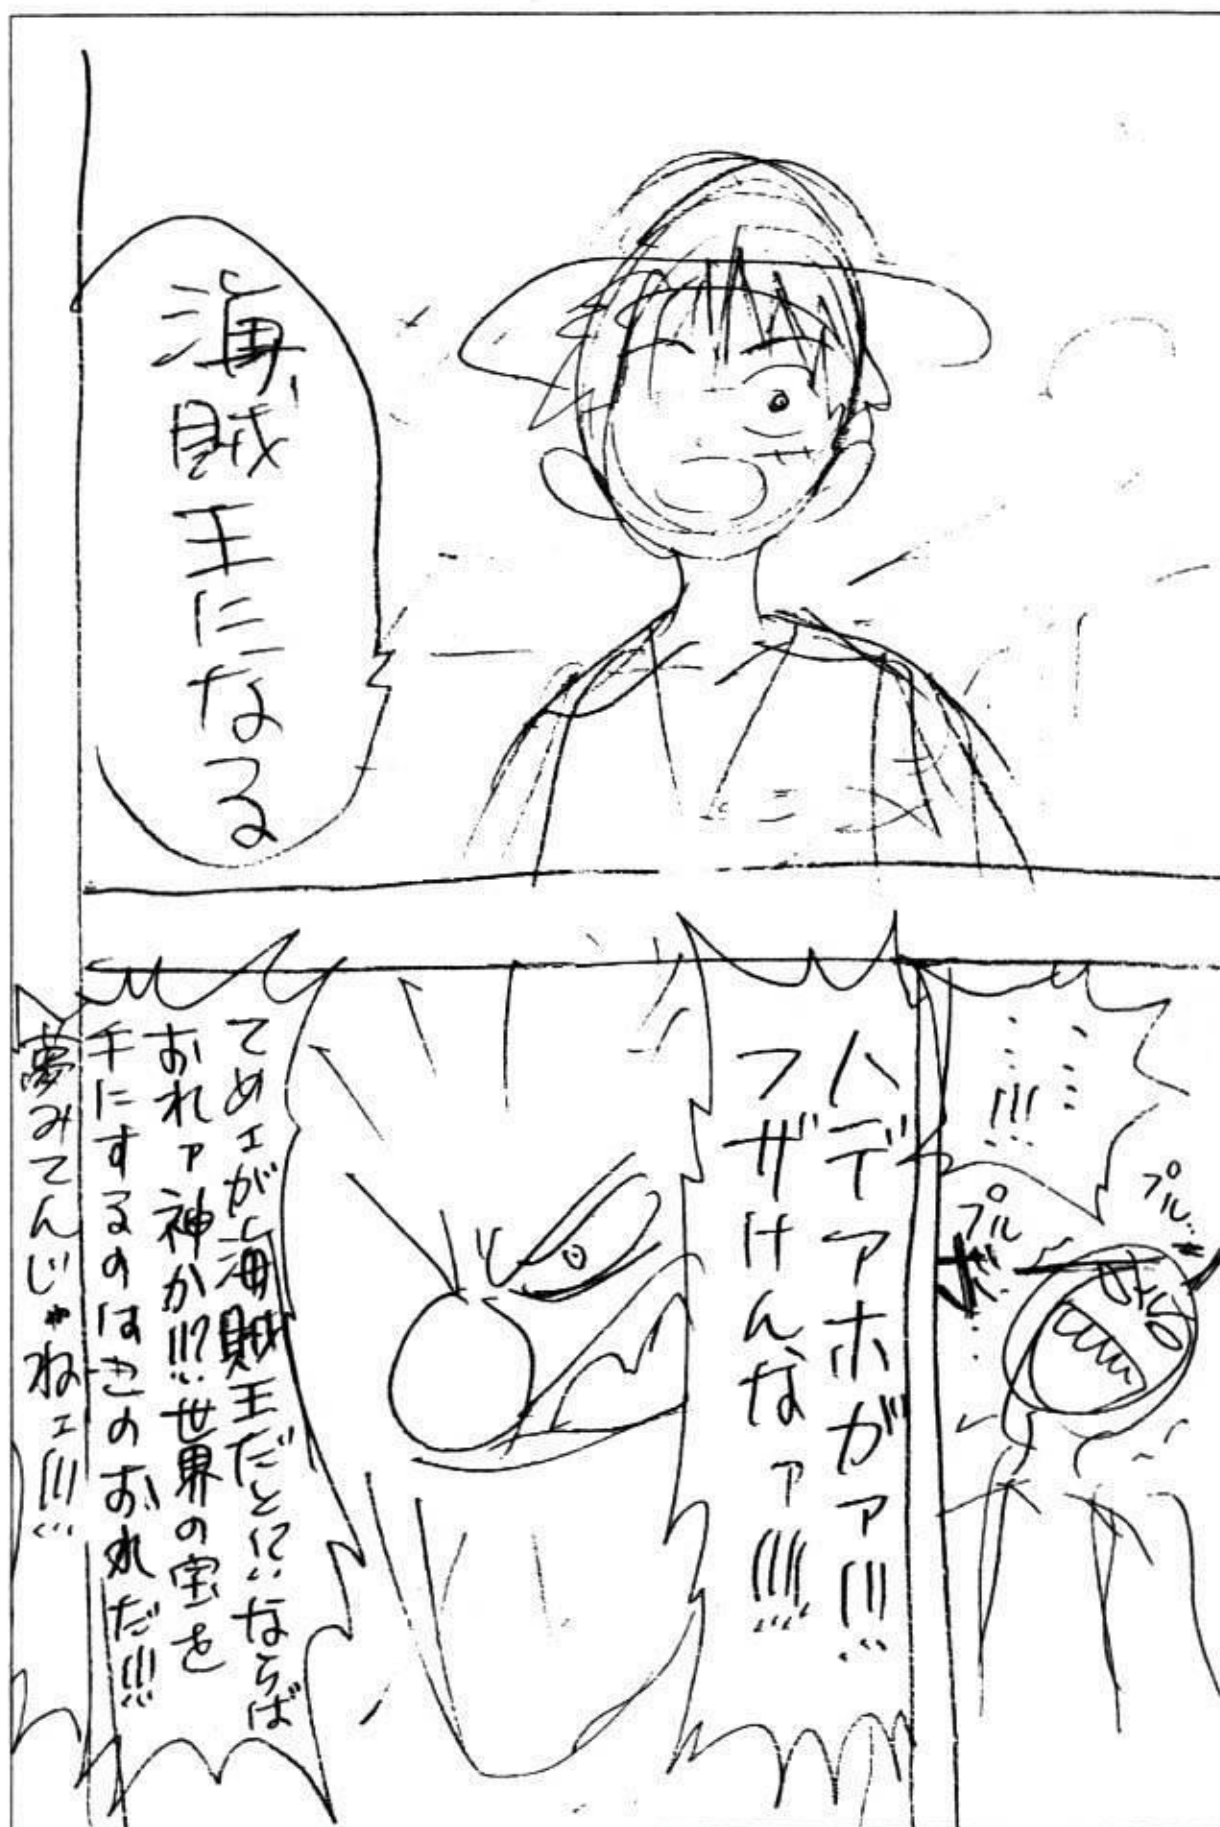 海賊王になる
…
…!!!
プルプル…
ハデアホがァ!!!
フザけんなァ!!!!
てめェが海賊王だと!?ならば
おれァ神か!!?世界の宝を
手にするのはこのおれだ!!!
夢みてんじゃねェ!!!